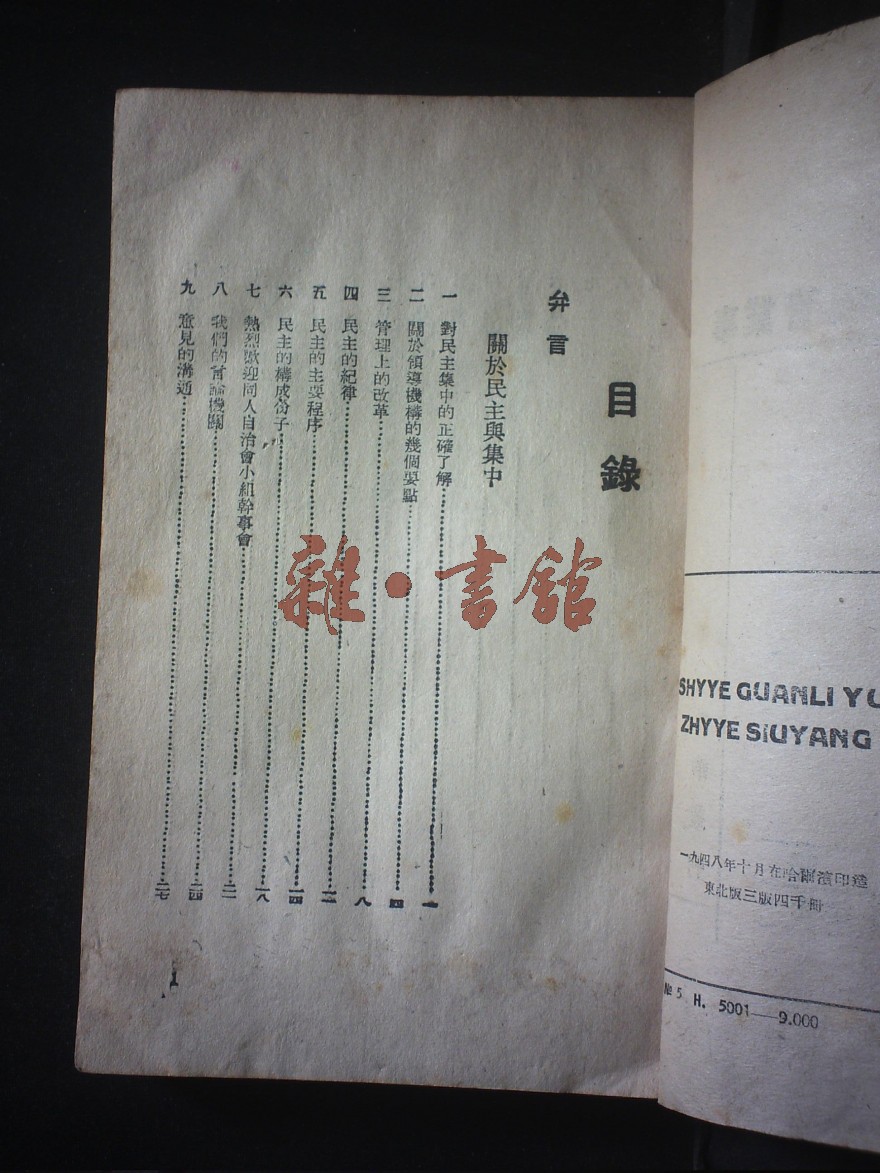 目錄
弁言
關於民主與集中
一 對民主集中的正確了解……一
二 關於領導機構的幾個要點……四
三 管理上的改革……八
四 民主的紀律……一二
五 民主的主要程序……一四
六 民主的構成份子……一八
七 熱烈歡迎同人自治會小組幹事會……二一
八 我們的言論機關……二四
九 意見的溝通……二七
1
雜·書館
SHYYE GUANLI YU
ZHYYE SIUYANG
一九四八年十月在哈爾濱印造
東北版三版四千冊
№ 5 H. 5001—9.000